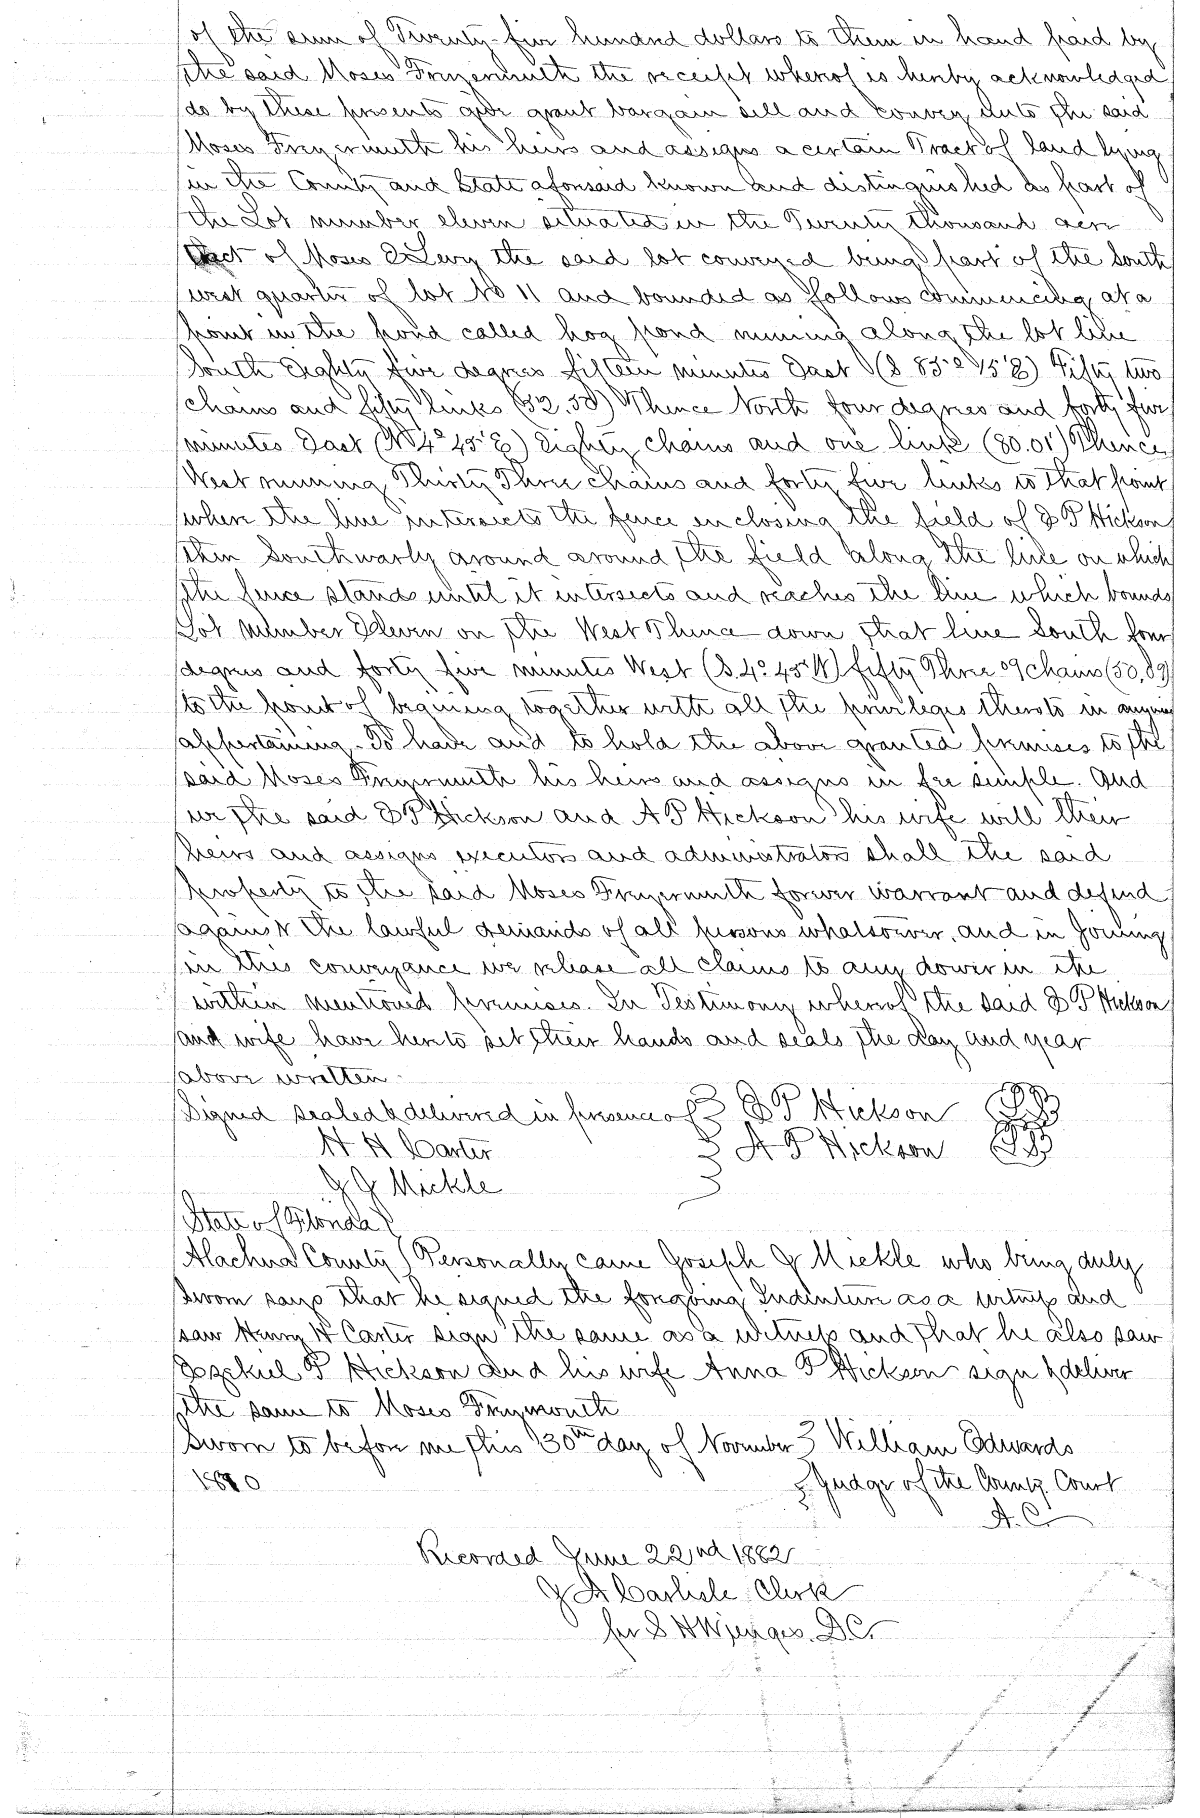 of the sum of Twenty-five hundred dollars to them in hand paid by
the said Moses Freyermuth the receipt whereof is hereby acknowledged
do by these presents give grant bargain sell and convey unto the said
Moses Freyermuth his heirs and assigns a certain Tract of land lying
in the County and State aforesaid known and distinguished as part of
the Lot number eleven situated in the Twenty thousand acre
tract of Moses E Levy the said lot conveyed being part of the South
west quarter of lot No 11 and bounded as follows commencing at a
point in the pond called hog pond running along the lot line
South Eighty five degrees fifteen minutes East (S 85° 15' E) Fifty two
chains and fifty links (52.50) Thence North four degrees and forty five
minutes East (N 4° 45' E) Eighty chains and one link (80.01) Thence
West running Thirty Three chains and forty five links to that point
where the line intersects the fence enclosing the field of E P Hickson
then Southwarly around around the field along the line on which
the fence stands until it intersects and reaches the line which bounds
Lot number Eleven on the West Thence down that line South four
degrees and forty five minutes West (S. 4° 45' W) fifty Three 09 chains (50,09)
to the point of begining together with all the privileges thereto in
appertaining. To have and to hold the above granted premises to the
said Moses Freyermuth his heirs and assigns in fee simple. And
we the said E P Hickson and A P Hickson his wife will their
heirs and assigns executors and administrators shall the said
property to the said Moses Freyermuth forever warrant and defend
against the lawful demands of all persons whatsoever, and in Joining
in this conveyance we release all claims to any dower in the
within mentioned premises. In Testimony whereof the said E P Hickson
and wife have hereto set their hands and seals the day and year
above written.
Signed sealed & delivered in presence of E P Hickson
H H Carter A P Hickson
J J Mickle
State of Florida
Alachua County Personally came Joseph J Mickle who being duly
sworn says that he signed the foregoing Indenture as a witness and
saw Henry H Carter sign the same as a witness and that he also saw
Ezekiel P Hickson and his wife Anna P Hickson sign & deliver
the same to Moses Freymouth
Sworn to before me this 30th day of November William Edwards
1880 Judge of the County Court
A. C.
Recorded June 22nd 1882
J A Carlisle Clerk
per S H Wienges. D.C.